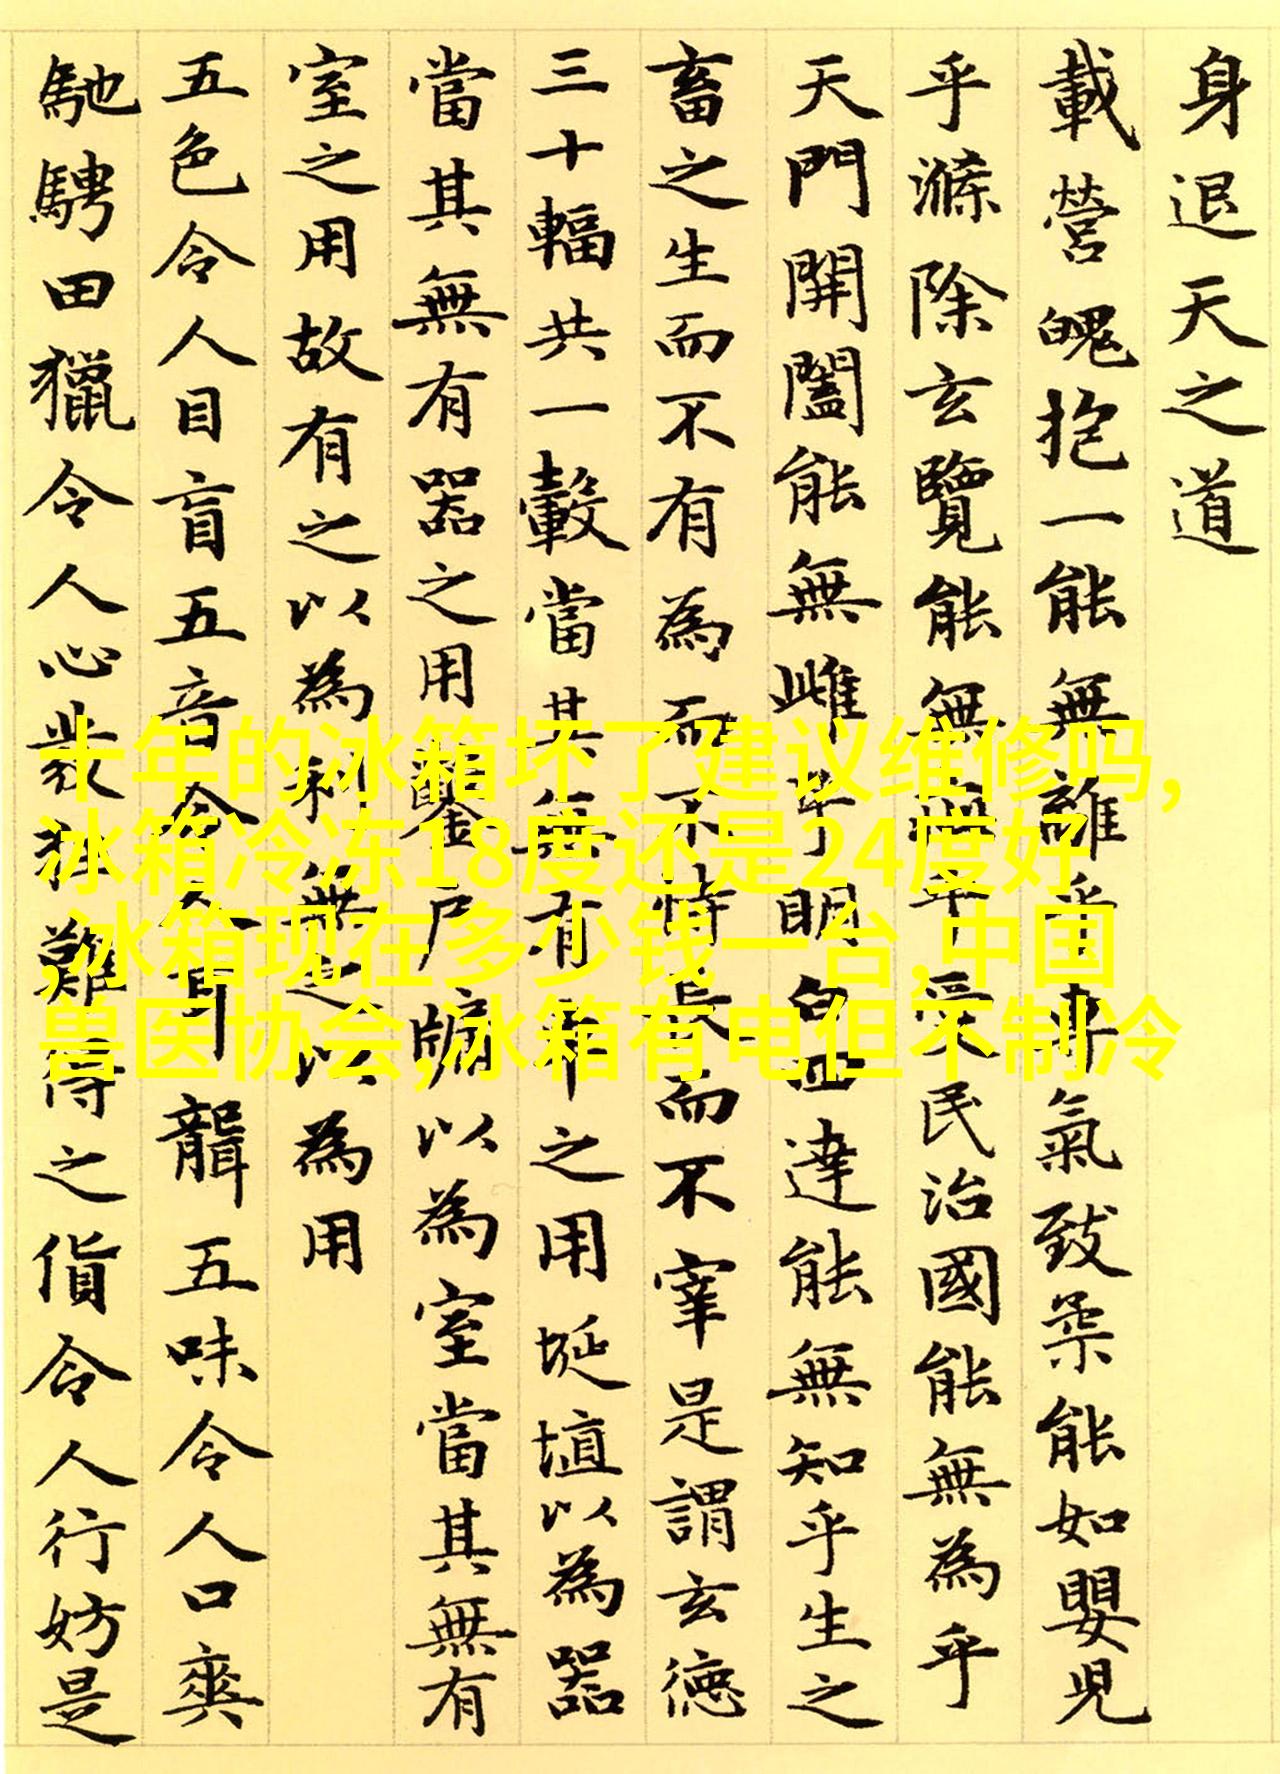 身退天之道
載營魄抱一能無離乎專氣致柔能如嬰兒
乎滌除玄覽能無疵乎愛民治國能無為乎
天門開闔能無雌乎明白四達能無知乎生之
畜之生而不有為而不恃長而不宰是謂玄德
三十輻共一轂當其無有車之用埏埴以為器
當其無有器之用鑿戶牖以為室當其無有
室之用故有之以為利無之以為用
五色令人目盲五音令人耳聾五味令人口爽
馳騁田獵令人心發狂難得之貨令人行妨是
十年的冰箱坏了建议维修吗,
冰箱冷冻18度还是24度好
,冰箱现在多少钱一台,中国
兽医协会,冰箱有电但不制冷